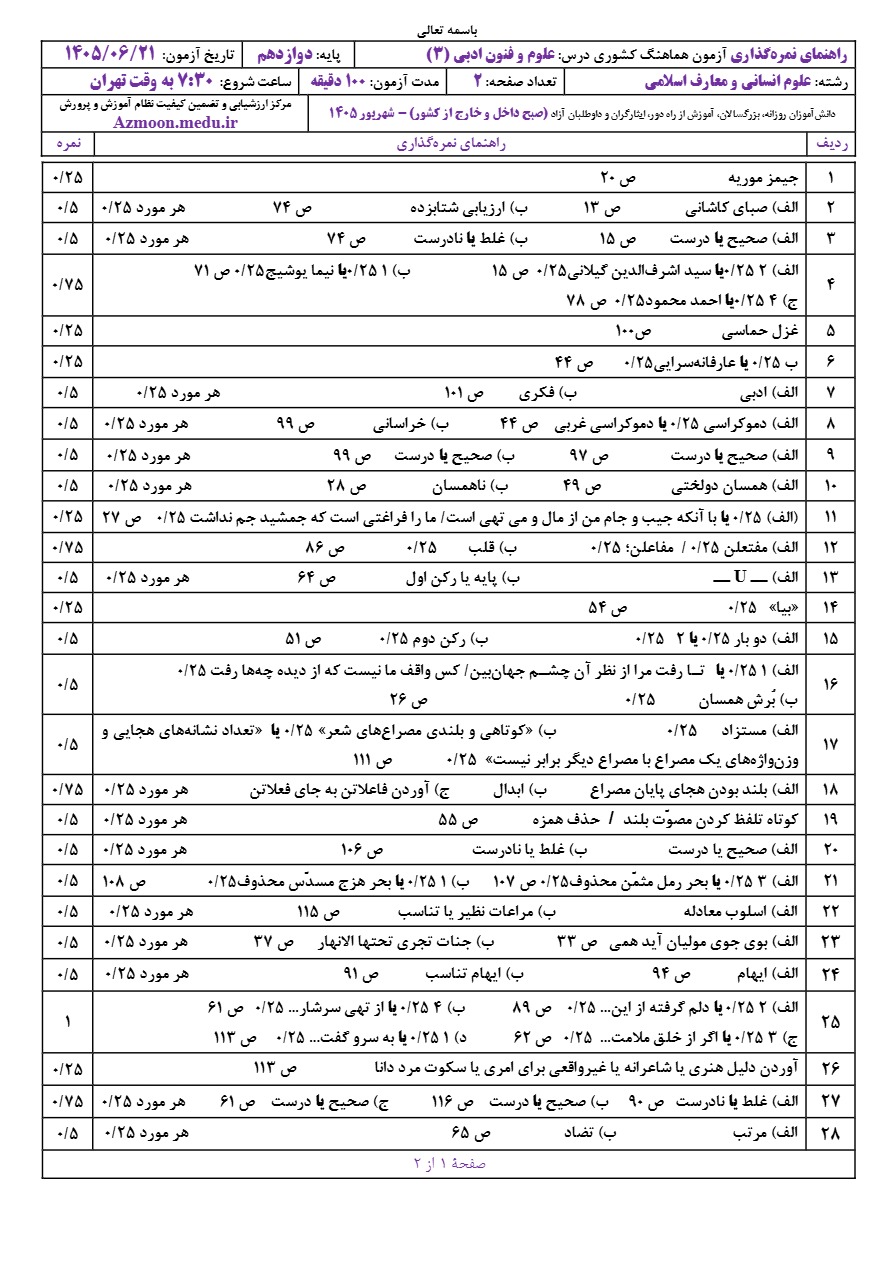 باسمه تعالی
راهنمای نمره‌گذاری آزمون هماهنگ کشوری درس: علوم و فنون ادبی (۳) پایه: دوازدهم تاریخ آزمون: ۱۴۰۵/۰۶/۲۱
رشته: علوم انسانی و معارف اسلامی تعداد صفحه: ۲ مدت آزمون: ۱۰۰ دقیقه ساعت شروع: ۷:۳۰ به وقت تهران
دانش‌آموزان روزانه، بزرگسالان، آموزش از راه دور، ایثارگران و داوطلبان آزاد (صبح داخل و خارج از کشور) – شهریور ۱۴۰۵ مرکز ارزشیابی و تضمین کیفیت نظام آموزش و پرورش
Azmoon.medu.ir
ردیف راهنمای نمره‌گذاری نمره
۱ جیمز موریه ص ۲۰ ۰/۲۵
۲ الف) صبای کاشانی ص ۱۳ ب) ارزیابی شتابزده ص ۷۴ هر مورد ۰/۲۵ ۰/۵
۳ الف) صحیح یا درست ص ۱۵ ب) غلط یا نادرست ص ۷۴ هر مورد ۰/۲۵ ۰/۵
۴ الف) ۲ ۰/۲۵یا سید اشرف‌الدین گیلانی۰/۲۵ ص ۱۵ ب) ۱ ۰/۲۵یا نیما یوشیج۰/۲۵ ص ۷۱
ج) ۴ ۰/۲۵یا احمد محمود۰/۲۵ ص ۷۸ ۰/۷۵
۵ غزل حماسی ص۱۰۰ ۰/۲۵
۶ ب ۰/۲۵ یا عارفانه‌سرایی۰/۲۵ ص ۴۴ ۰/۲۵
۷ الف) ادبی ب) فکری ص ۱۰۱ هر مورد ۰/۲۵ ۰/۵
۸ الف) دموکراسی ۰/۲۵ یا دموکراسی غربی ص ۴۴ ب) خراسانی ص ۹۹ هر مورد ۰/۲۵ ۰/۵
۹ الف) صحیح یا درست ص ۹۷ ب) صحیح یا درست ص ۹۹ هر مورد ۰/۲۵ ۰/۵
۱۰ الف) همسان دولختی ص ۴۹ ب) ناهمسان ص ۲۸ هر مورد ۰/۲۵ ۰/۵
۱۱ (الف) ۰/۲۵ یا با آنکه جیب و جام من از مال و می تهی است/ ما را فراغتی است که جمشید جم نداشت ۰/۲۵ ص ۲۷ ۰/۲۵
۱۲ الف) مفتعلن ۰/۲۵ / مفاعلن؛ ۰/۲۵ ب) قلب ۰/۲۵ ص ۸۶ ۰/۷۵
۱۳ الف) — U — ب) پایه یا رکن اول ص ۶۴ هر مورد ۰/۲۵ ۰/۵
۱۴ «بیا» ۰/۲۵ ص ۵۴ ۰/۲۵
۱۵ الف) دو بار ۰/۲۵ یا ۲ ۰/۲۵ ب) رکن دوم ۰/۲۵ ص ۵۱ ۰/۵
۱۶ الف) ۱ ۰/۲۵ یا تا رفت مرا از نظر آن چشم جهان‌بین/ کس واقف ما نیست که از دیده چه‌ها رفت ۰/۲۵
ب) بُرش همسان ۰/۲۵ ص ۲۶ ۰/۵
۱۷ الف) مستزاد ۰/۲۵ ب) «کوتاهی و بلندی مصراع‌های شعر» ۰/۲۵ یا «تعداد نشانه‌های هجایی و
وزن‌واژه‌های یک مصراع با مصراع دیگر برابر نیست» ۰/۲۵ ص ۱۱۱ ۰/۵
۱۸ الف) بلند بودن هجای پایان مصراع ب) ابدال ج) آوردن فاعلاتن به جای فعلاتن هر مورد ۰/۲۵ ۰/۷۵
۱۹ کوتاه تلفظ کردن مصوّت بلند / حذف همزه ص ۵۵ هر مورد ۰/۲۵ ۰/۵
۲۰ الف) صحیح یا درست ب) غلط یا نادرست ص ۱۰۶ هر مورد ۰/۲۵ ۰/۵
۲۱ الف) ۳ ۰/۲۵ یا بحر رمل مثمّن محذوف۰/۲۵ ص ۱۰۷ ب) ۱ ۰/۲۵ یا بحر هزج مسدّس محذوف۰/۲۵ ص ۱۰۸ ۰/۵
۲۲ الف) اسلوب معادله ب) مراعات نظیر یا تناسب ص ۱۱۵ هر مورد ۰/۲۵ ۰/۵
۲۳ الف) بوی جوی مولیان آید همی ص ۳۳ ب) جنات تجری تحتها الانهار ص ۳۷ هر مورد ۰/۲۵ ۰/۵
۲۴ الف) ایهام ص ۹۴ ب) ایهام تناسب ص ۹۱ هر مورد ۰/۲۵ ۰/۵
۲۵ الف) ۲ ۰/۲۵ یا دلم گرفته از این... ۰/۲۵ ص ۸۹ ب) ۴ ۰/۲۵ یا از تهی سرشار... ۰/۲۵ ص ۶۱
ج) ۳ ۰/۲۵ یا اگر از خلق ملامت... ۰/۲۵ ص ۶۲ د) ۱ ۰/۲۵ یا به سرو گفت... ۰/۲۵ ص ۱۱۳ ۱
۲۶ آوردن دلیل هنری یا شاعرانه یا غیرواقعی برای امری یا سکوت مرد دانا ص ۱۱۳ ۰/۲۵
۲۷ الف) غلط یا نادرست ص ۹۰ ب) صحیح یا درست ص ۱۱۶ ج) صحیح یا درست ص ۶۱ هر مورد ۰/۲۵ ۰/۷۵
۲۸ الف) مرتب ب) تضاد ص ۶۵ هر مورد ۰/۲۵ ۰/۵
صفحهٔ ۱ از ۲